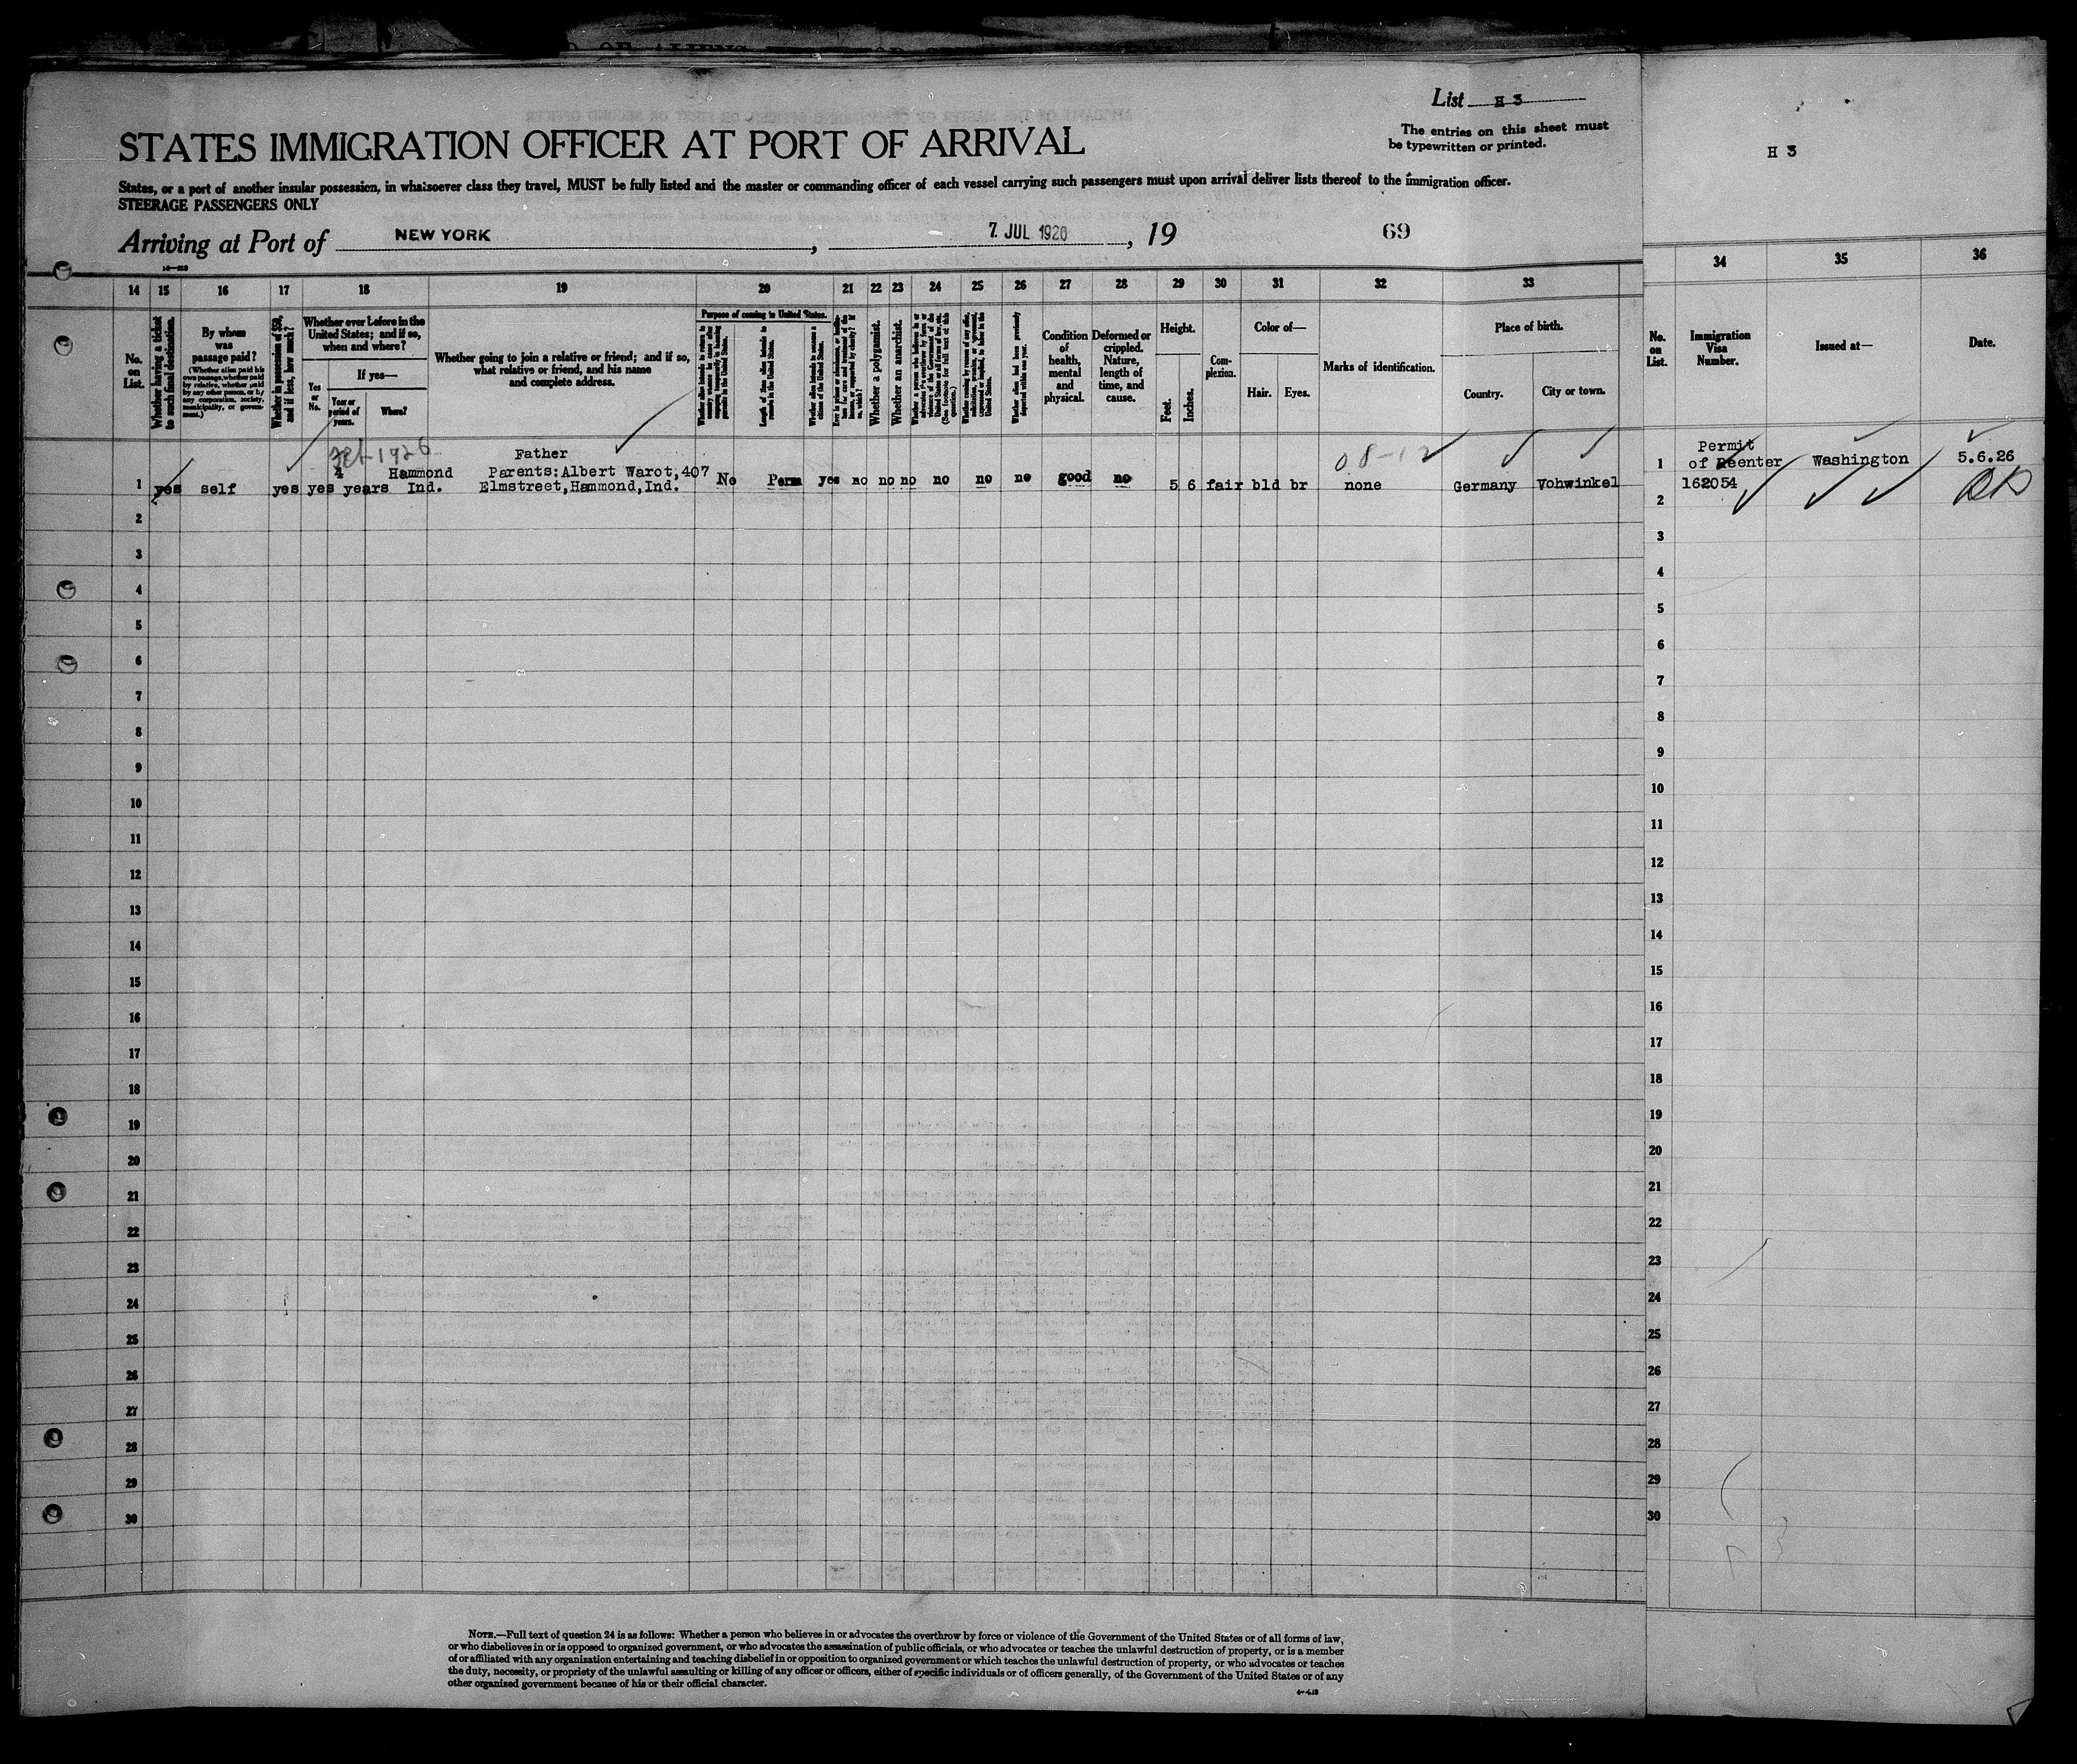 List H 3
The entries on this sheet must
be typewritten or printed.
H 3
STATES IMMIGRATION OFFICER AT PORT OF ARRIVAL
States, or a port of another insular possession, in whatsoever class they travel, MUST be fully listed and the master or commanding officer of each vessel carrying such passengers must upon arrival deliver lists thereof to the immigration officer.
STEERAGE PASSENGERS ONLY
Arriving at Port of NEW YORK, 7. JUL 1926, 19
69
14 15 16 17 18 19 20 21 22 23 24 25 26 27 28 29 30 31 32 33 34 35 36
No.
on
List.
Whether having a ticket
to such final destination.
By whom
was
passage paid?
(Whether alien paid his
own passage, whether paid
by relative, whether paid
by any other person, or by
any corporation, society,
municipality, or govern-
ment.)
Whether in possession of $50,
and if less, how much?
Whether ever before in the
United States; and if so,
when and where?
Yes
or
No.
If yes—
Year or
period of
years.
Where?
Whether going to join a relative or friend; and if so,
what relative or friend, and his name
and complete address.
Purpose of coming to United States.
Length of time alien intends to
remain in the United States.
Whether alien intends to become a
citizen of the United States.
Whether a polygamist.
Whether an anarchist.
Whether alien had been previously
deported within one year.
Condition
of
health,
mental
and
physical.
Deformed or
crippled.
Nature,
length of
time, and
cause.
Height.
Feet.
Inches.
Com-
plexion.
Color of—
Hair.
Eyes.
Marks of identification.
Place of birth.
Country.
City or town.
No.
on
List.
Immigration
Visa
Number.
Issued at—
Date.
Feb 1926
Father
08-12
Permit
4 Hammond Parents:Albert Warot,407
1 of Reenter Washington 5.6.26
1 yes self yes yes years Ind. Elmstreet,Hammond,Ind. No Perm yes no no no no no no good no 5 6 fair bld br none Germany Vohwinkel
162054
2 2
3 3
4 4
5 5
6 6
7 7
8 8
9 9
10 10
11 11
12 12
13 13
14 14
15 15
16 16
17 17
18 18
19 19
20 20
21 21
22 22
23 23
24 24
25 25
26 26
27 27
28 28
29 29
30 30
NOTE.—Full text of question 24 is as follows: Whether a person who believes in or advocates the overthrow by force or violence of the Government of the United States or of all forms of law,
or who disbelieves in or is opposed to organized government, or who advocates the assassination of public officials, or who advocates or teaches the unlawful destruction of property, or is a member
of or affiliated with any organization entertaining and teaching disbelief in or opposition to organized government or which teaches the unlawful destruction of property, or who advocates or teaches
the duty, necessity, or propriety of the unlawful assaulting or killing of any officer or officers, either of specific individuals or of officers generally, of the Government of the United States or of any
other organized government because of his or their official character.